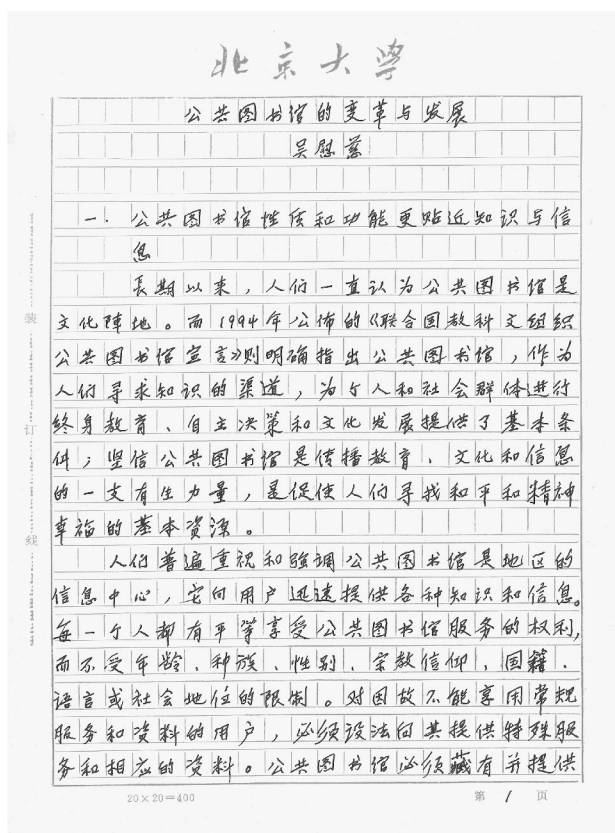 北京大学
公共图书馆的变革与发展
吴慰慈
一．公共图书馆性质和功能更贴近知识与信
息
長期以来，人们一直认为公共图书馆是
文化陣地。而1994年公佈的《联合国教科文组织
公共图书馆宣言》则明确指出公共图书馆，作为
人们寻求知识的渠道，为个人和社会群体进行
终身教育、自主决策和文化发展提供了基本条
件；坚信公共图书馆是传播教育、文化和信息
的一支有生力量，是促使人们寻找和平和精神
幸福的基本资源。
人们普遍重视和强调公共图书馆是地区的
信息中心，它向用户迅速提供各种知识和信息。
每一个人都有平等享受公共图书馆服务的权利，
而不受年龄、种族、性别、宗教信仰、国籍、
语言或社会地位的限制。对因故不能享用常规
服务和资料的用户，必须设法向其提供特殊服
务和相应的资料。公共图书馆必须藏有并提供
装
订
线
20×20=400
第 1 页